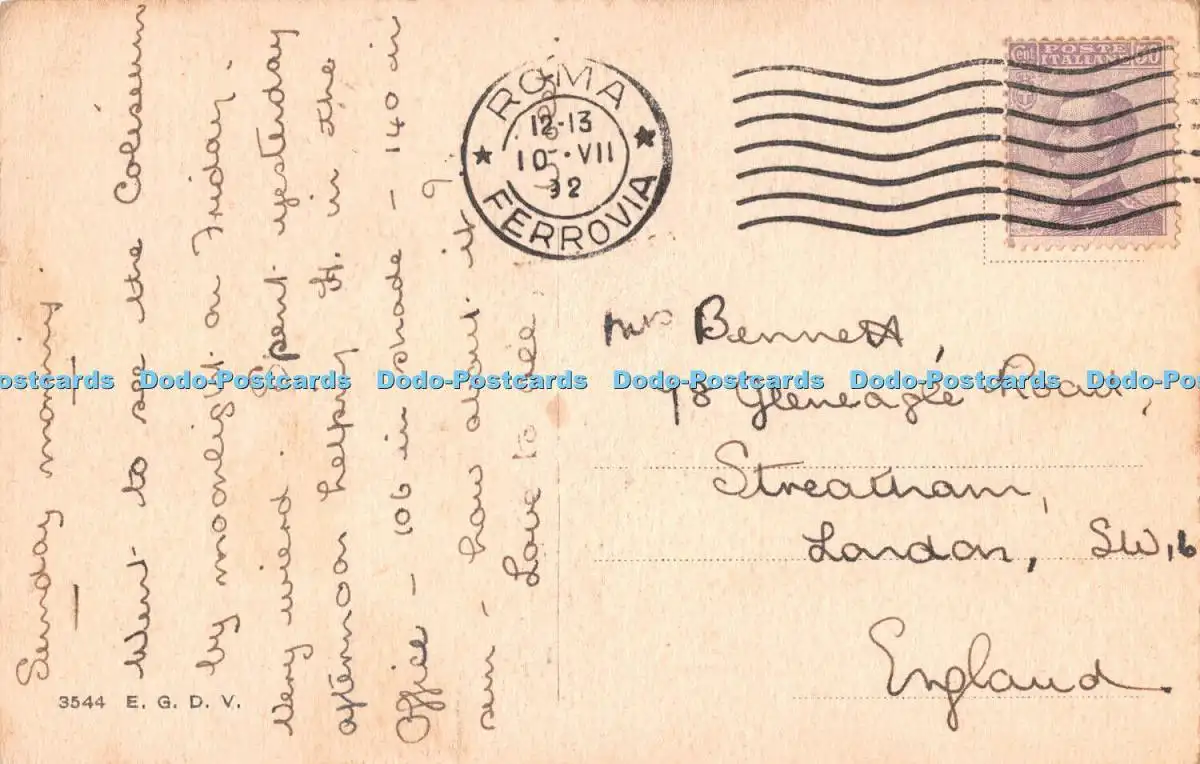 Sunday morning
Went to see the Coliseum
by moonlight on Friday.
Very wierd. Spent yesterday
afternoon helping H. in the
Office – 106 in shade – 140 in
sun – how about it?
Love to all,
ROMA
12-13
10 · VII
32
FERROVIA
Cent POSTE 50
ITALIANE
Mrs Bennett,
98 Gleneagle Road,
Streatham,
London, SW,16
England.
3544 E. G. D. V.
Dodo-Postcards Dodo-Postcards Dodo-Postcards Dodo-Postcards Dodo-Postcards